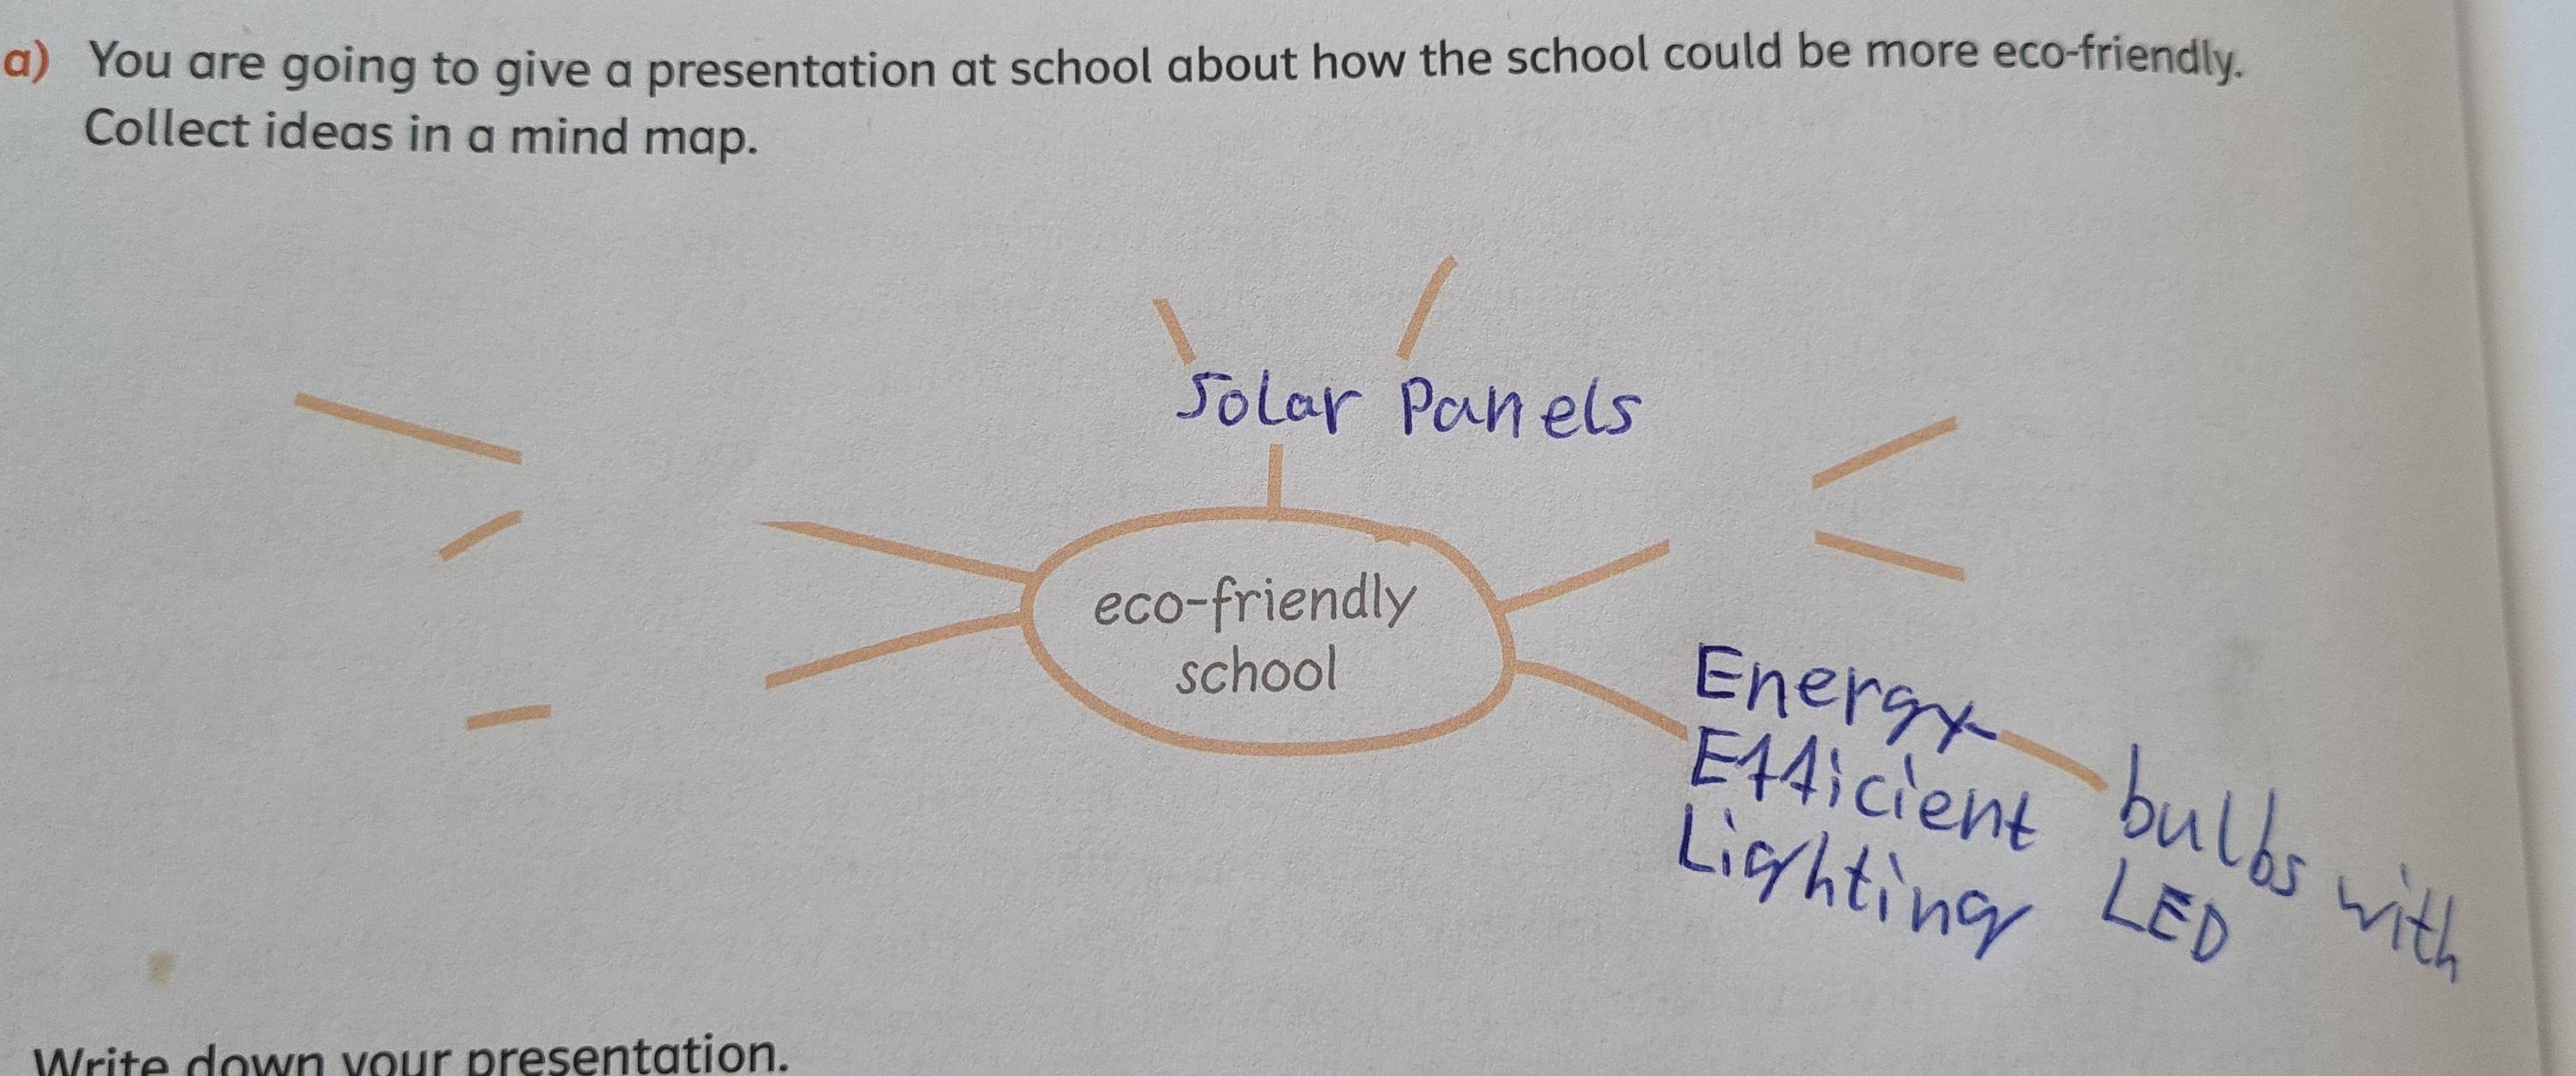 a) You are going to give a presentation at school about how the school could be more eco-friendly.
Collect ideas in a mind map.
Solar Panels
eco-friendly
school
Energy
Efficient
Lighting
bulbs with
LED
Write down your presentation.